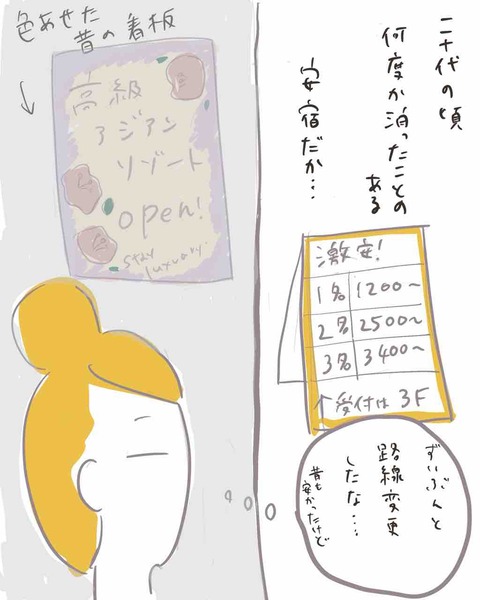 二十代の頃
何度か泊ったことの
ある
安宿だが…
色あせた
昔の看板
高級
アジアン
リゾート
open!
stay
luxuary.
激安!
1名 1200~
2名 2500~
3名 3400~
↑受付は3F
ずいぶんと
路線変更
したな…
昔も
安かったけど